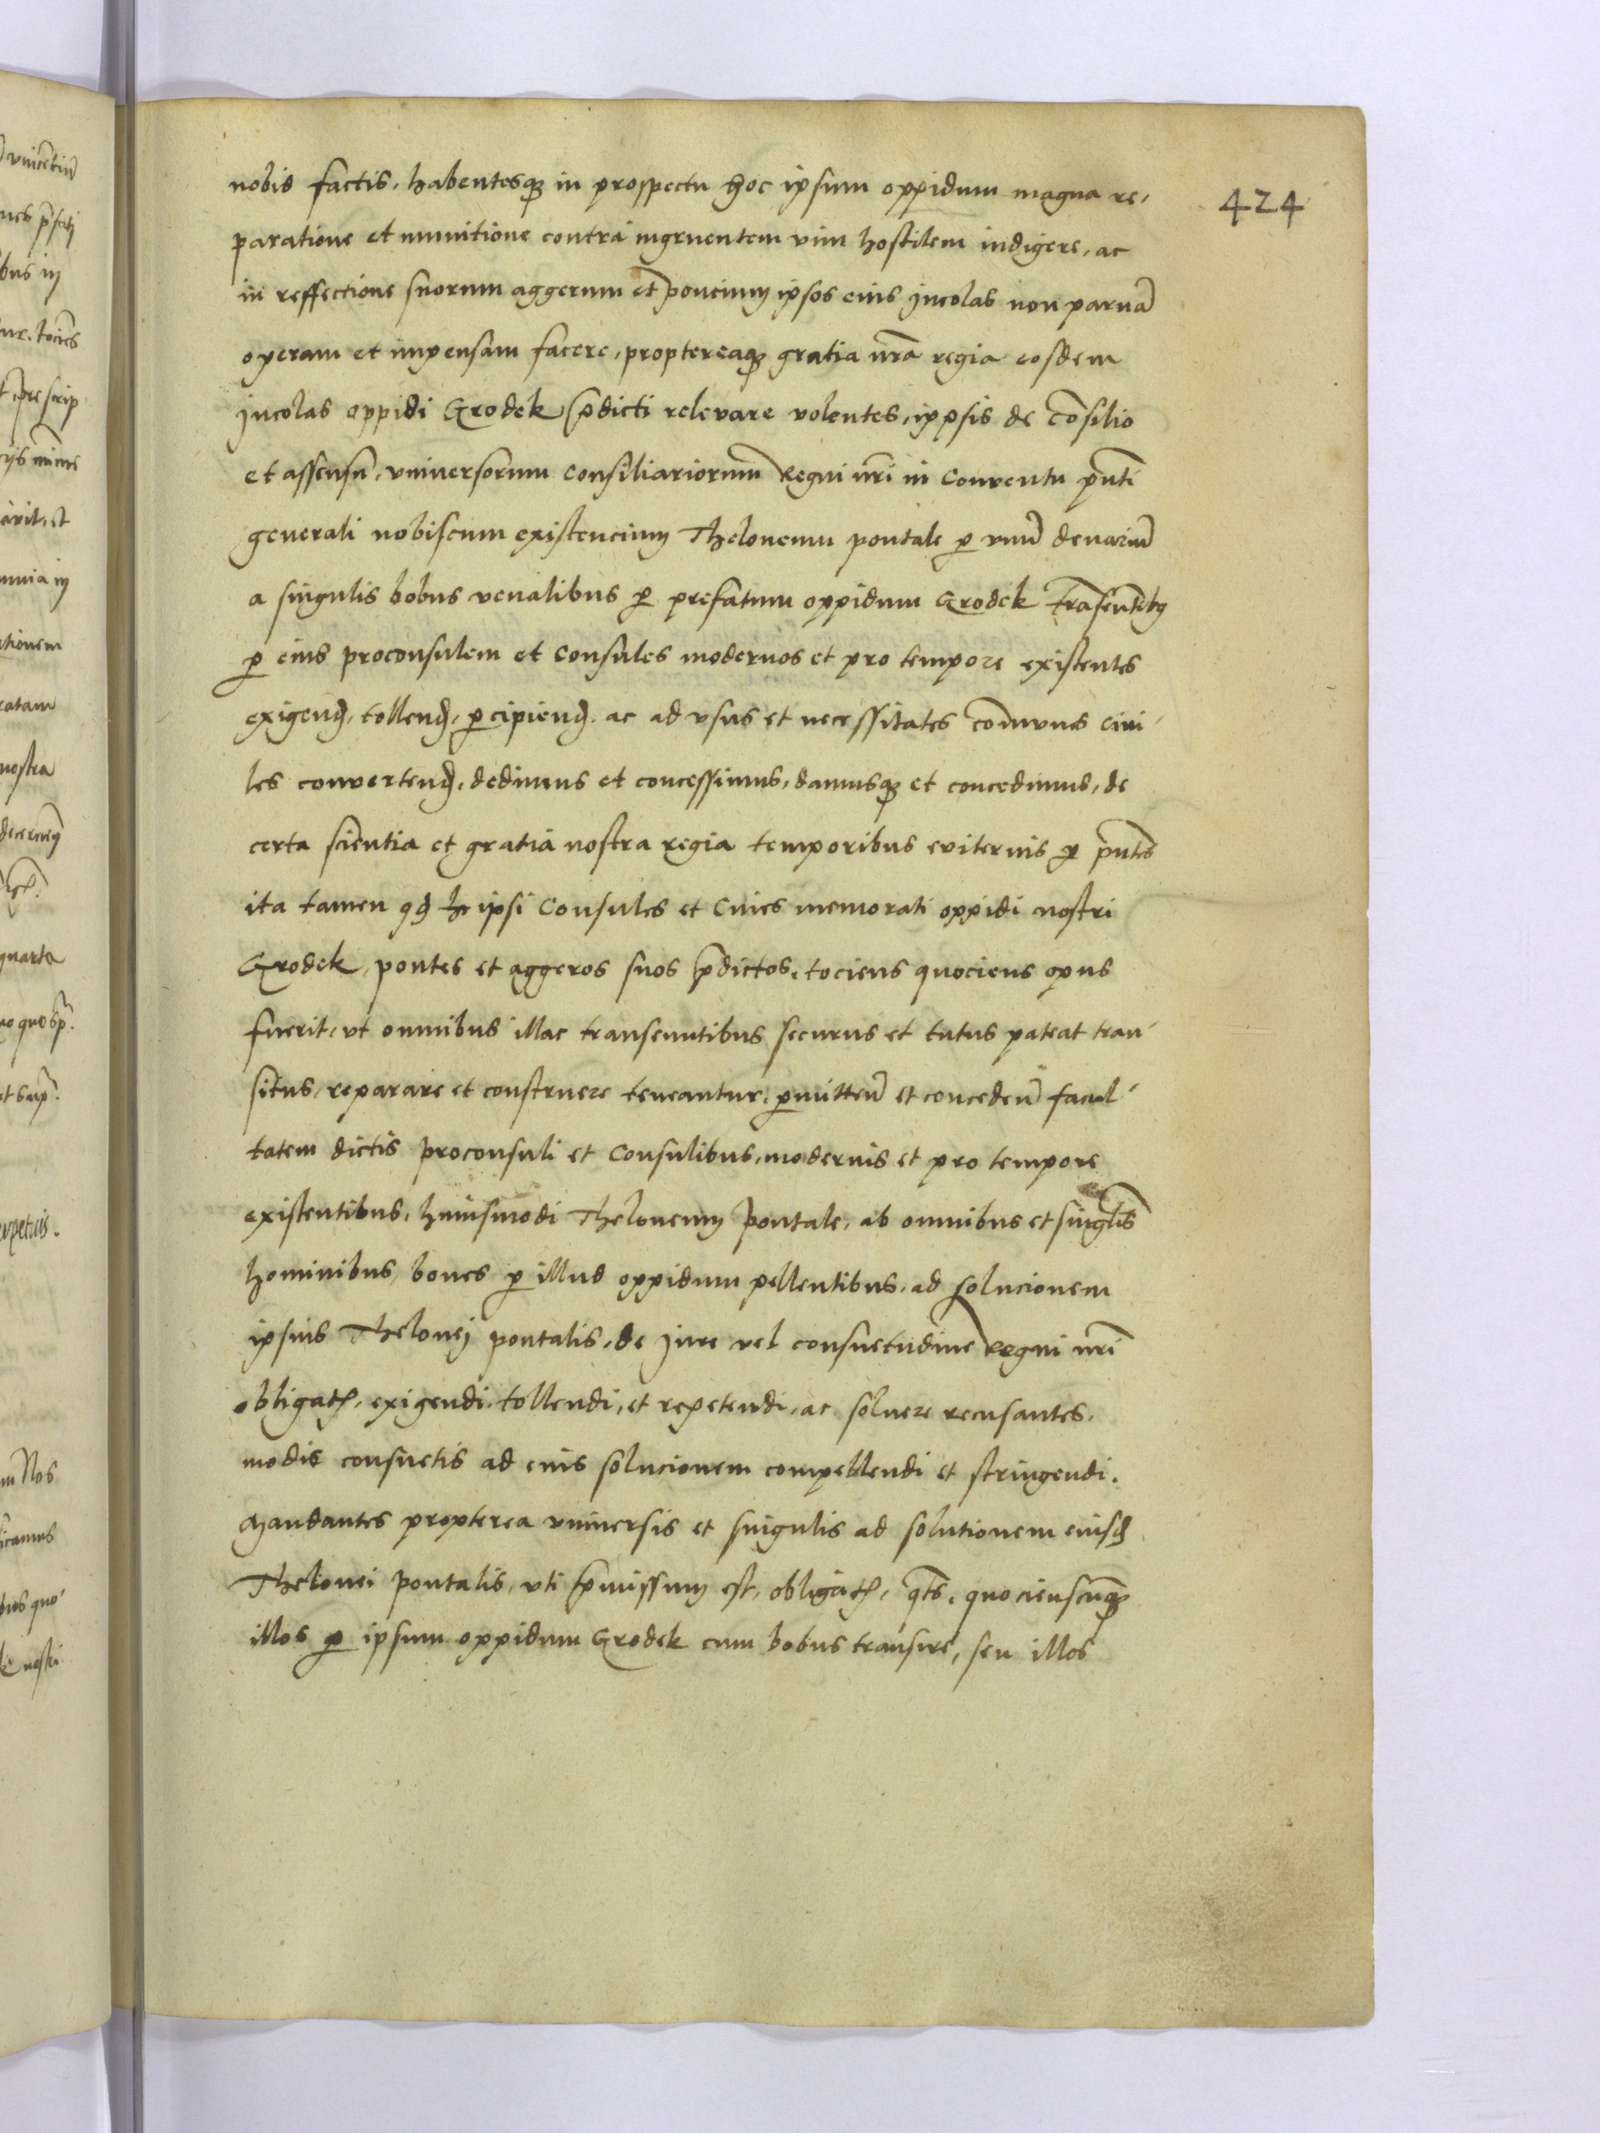 424
nobis factis, habentesq₃ in prospectu hoc ipsum oppidum magna re,
paratione et munitione contra ingruentem vim hostilem indigere, ac
in reffectione suorum aggerum et poncium ipsos eius Incolas non paruā
operam et impensam facere, proptereaq₃ gratia nr̄a regia eosdem
Incolas oppidi Grodek p̄dicti relevare volentes, ippsis de cōsilio
et assensu, vniuersorum consiliariorum Regni nr̄i in Conventu pn̄ti
generali nobiscum existencium Thelonemm pontale ꝑ vnū denariū
a singulis bobus venalibus ꝑ prefatum oppidum Grodek trāseūtibꝫ
ꝑ eius proconsulem et Consules modernos et pro tempore existentes
exigenđ, tollenđ, ꝑcipienđ. ac ad vsus et necessitates com̄unes ciui,
les convertenđ, dedimus et concessimus, damusq₃ et concedimus, de
certa scientia et gratia nostra regia temporibus eviternis ꝑ pn̄tes
ita tamen qđ ipsi Consules et Ciues memorati oppidi nostri
Grodek, pontes et aggeros suos p̄dictos, tociens quociens opus
fuerit, vt omnibus illac transeuntibus securus et tutus pateat tran,
situs, reparare et construere teneantur, ꝑmitteñ et concedeñ facul,
tatem dictis proconsuli et Consulibus, modernis et pro tempore
existentibus, huiusmodi Theloneum pontale, ab omnibus et singulis
hominibus, boues ꝑ illud oppidum pellentibus, ad solucionem
ipsius Thelonej pontalis, de Jure vel consuetudine Regni nr̄i
obligatꝭ, exigendi, tollendi, et repetendi, ac soluere recusantes,
modis consuetis ad eius solucionem compellendi et stringendi.
Mandantes propterea vniuersis et singulis ad solutionem eiusđ
Thelonei pontalis, vti p̄missum est, obligatꝭ, qts̄, quocienscūq₃
illos ꝑ ipsum oppidum Grodek cum bobus transire, seu illos